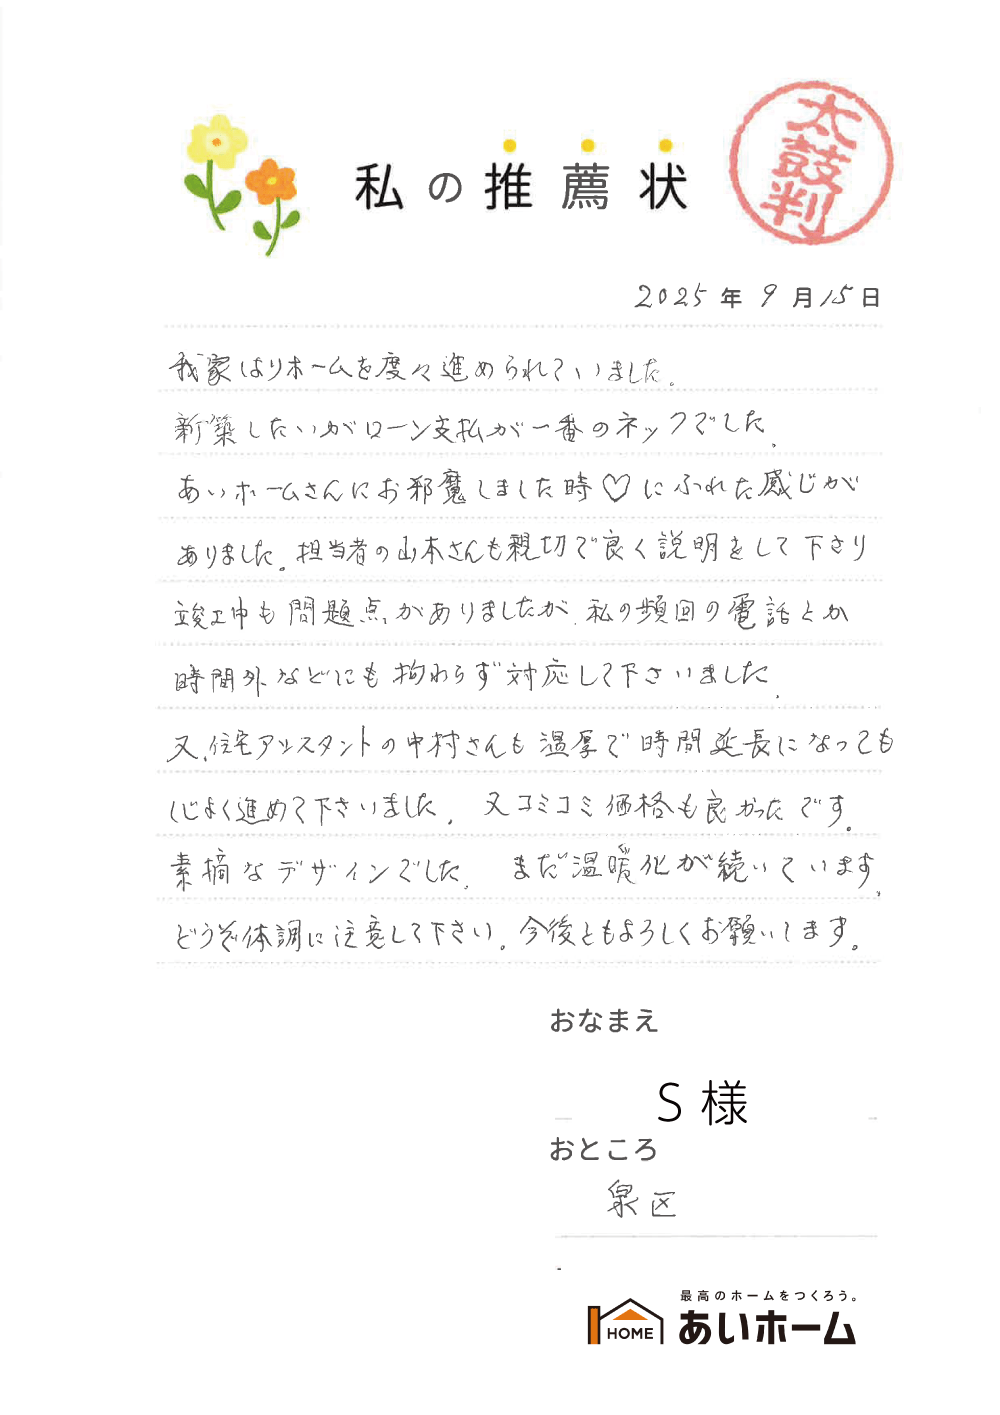 私の推薦状
太鼓判
2025年9月15日
我家はリホームを度々進められていました。
新築したいがローン支払が一番のネックでした。
あいホームさんにお邪魔しました時♡にふれた感じが
ありました。担当者の山本さんも親切で良く説明をして下さり
竣工中も問題点がありましたが、私の頻回の電話とか
時間外などにも拘わらず対応して下さいました。
又、住宅アシスタントの中村さんも温厚で時間延長になっても
心よく進めて下さいました。又コミコミ価格も良かったです。
素摘なデザインでした。まだ温暖化が続いています。
どうぞ体調に注意して下さい。今後ともよろしくお願いします。
おなまえ
S様
おところ
泉区
最高のホームをつくろう。
HOME あいホーム